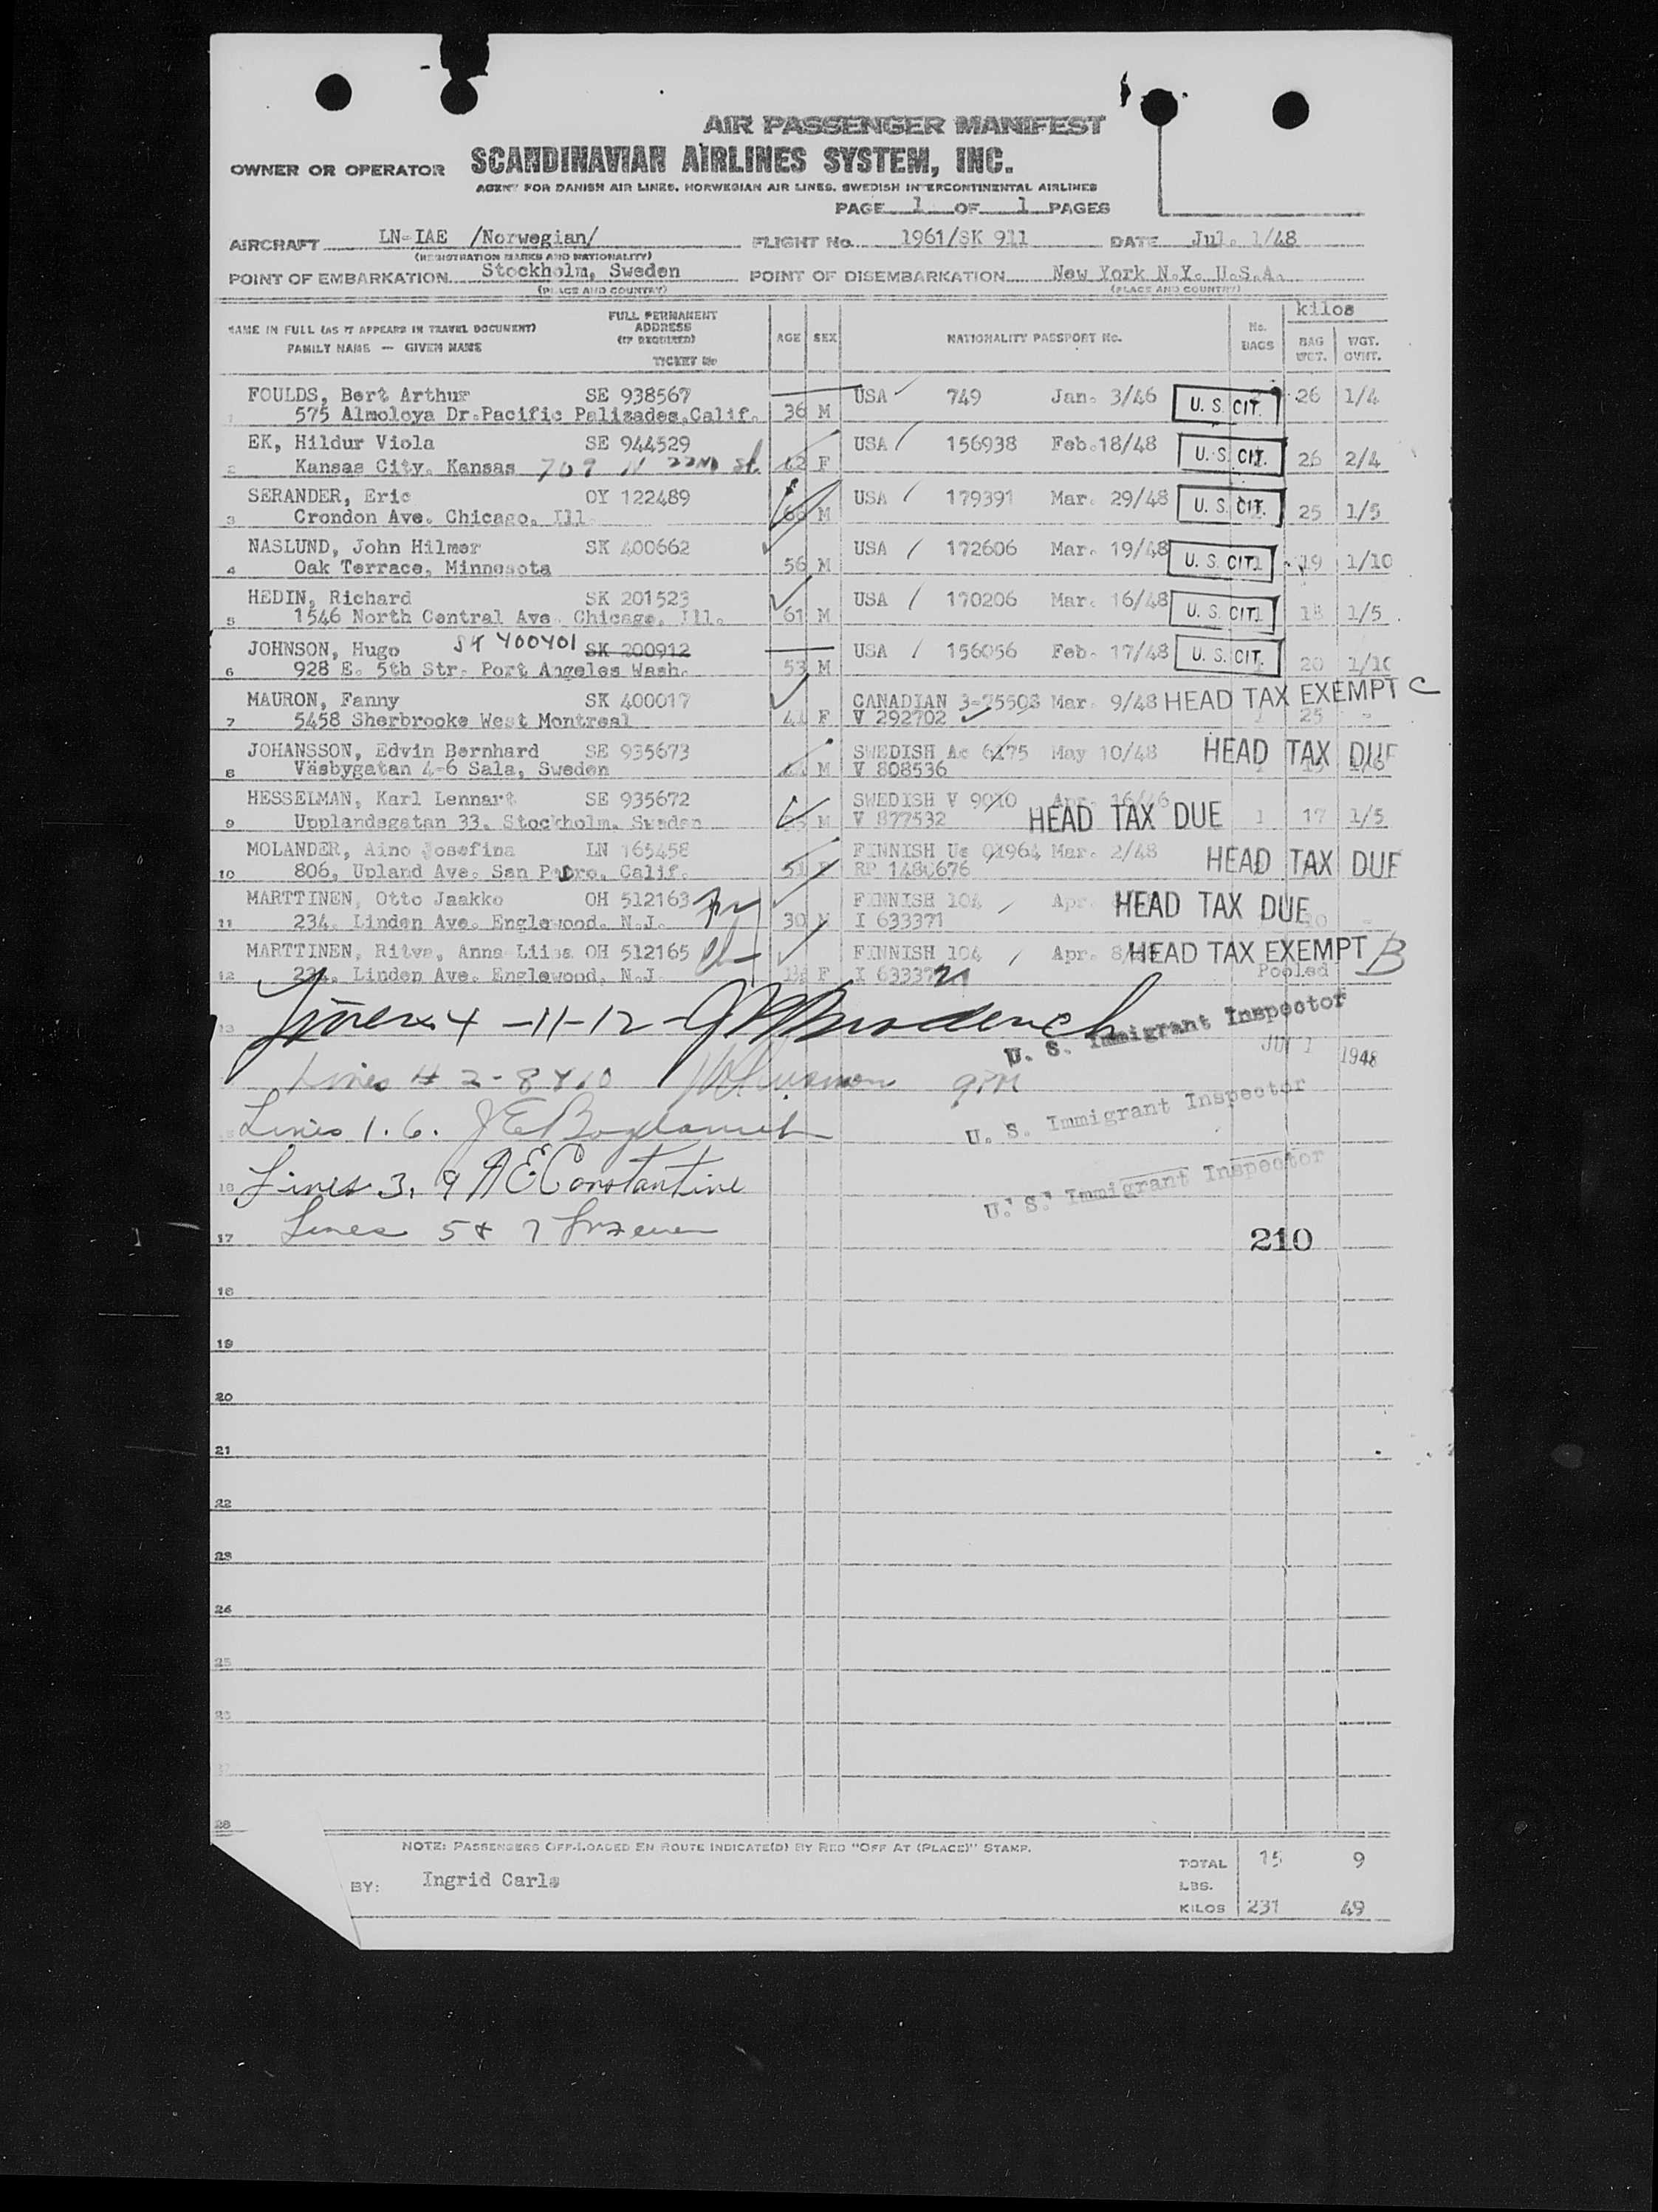 AIR PASSENGER MANIFEST
OWNER OR OPERATOR SCANDINAVIAN AIRLINES SYSTEM, INC.
AGENT FOR DANISH AIR LINES, NORWEGIAN AIR LINES, SWEDISH INTERCONTINENTAL AIRLINES
PAGE 1 OF 1 PAGES
AIRCRAFT LN-IAE /Norwegian/ FLIGHT No. 1961/SK 911 DATE Jul. 1/48
(REGISTRATION MARKS AND NATIONALITY)
POINT OF EMBARKATION Stockholm, Sweden POINT OF DISEMBARKATION New York N.Y. U.S.A.
(PLACE AND COUNTRY) (PLACE AND COUNTRY)
NAME IN FULL (AS IT APPEARS IN TRAVEL DOCUMENT) FAMILY NAME — GIVEN NAME FULL PERMANENT ADDRESS (IF REQUIRED) TICKET No AGE SEX NATIONALITY PASSPORT No. No. BAGS kilos BAG WGT. WGT. OVHT.
FOULDS, Bert Arthur SE 938567 USA 749 Jan. 3/46 U. S. CIT. 26 1/4
1 575 Almoloya Dr.Pacific Palisades,Calif. 36 M
EK, Hildur Viola SE 944529 USA 156938 Feb.18/48 U. S. CIT. 26 2/4
2 Kansas City, Kansas 709 N 22nd St. 62 F
SERANDER, Eric OY 122489 USA 179391 Mar. 29/48 U. S. CIT. 25 1/5
3 Crondon Ave. Chicago, Ill 66 M
NASLUND, John Hilmer SK 400662 USA 172606 Mar. 19/48 U. S. CIT. 19 1/10
4 Oak Terrace, Minnesota 56 M
HEDIN, Richard SK 201523 USA 170206 Mar. 16/48 U. S. CIT. 18 1/5
5 1546 North Central Ave Chicago, Ill. 61 M
JOHNSON, Hugo SK 400401 SK 200912 USA 156056 Feb. 17/48 U. S. CIT. 20 1/10
6 928 E. 5th Str. Port Angeles Wash. 53 M
MAURON, Fanny SK 400017 CANADIAN 3-75508 Mar. 9/48 HEAD TAX EXEMPT C
7 5458 Sherbrooke West Montreal 41 F V 292702 1 25 -
JOHANSSON, Edvin Bernhard SE 935673 SWEDISH Ac 6175 May 10/48 HEAD TAX DUE
8 Väsbygatan 4-6 Sala, Sweden M V 808536
HESSELMAN, Karl Lennart SE 935672 SWEDISH V 9010 Apr. 16/46 HEAD TAX DUE
9 Upplandsgatan 33, Stockholm, Sweden M V 877532 1 17 1/5
MOLANDER, Aino Josefina LN 165458 FINNISH Us 01964 Mar. 2/48 HEAD TAX DUE
10 806, Upland Ave. San Pedro, Calif. 51 F RP 1480676
MARTTINEN, Otto Jaakko OH 512163 FINNISH 104 Apr. HEAD TAX DUE
11 234, Linden Ave. Englewood, N.J. 30 M I 633371
MARTTINEN, Ritva, Anna Liisa OH 512165 FINNISH 104 Apr. 8/48 HEAD TAX EXEMPT B
12 234, Linden Ave. Englewood, N.J. F I 633372 Pooled
13 Lines 4 -11-12-
U. S. Immigrant Inspector
JUL 1 1948
Lines # 2-8 & 10
U. S. Immigrant Inspector
Lines 1. 6.
16 Lines 3, 9 A E Constantine
U. S. Immigrant Inspector
17 Lines 5 & 7 210
18
19
20
21
22
23
24
25
26
27
28
NOTE: PASSENGERS OFF-LOADED EN ROUTE INDICATE(D) BY RED "OFF AT (PLACE)" STAMP.
TOTAL 15 9
BY: Ingrid Carls
LBS.
KILOS 231 49